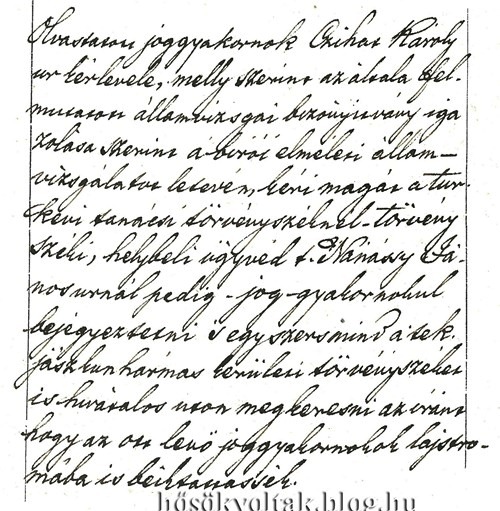 Olvastatott joggyakornok Csihat Károly
ur kérlevele, melly szerint az általa fel-
mutatott államvizsgai bizonyitvány iga
zolása szerint a birói elméleti állam-
vizsgálatot letevén, kéri magát a tur-
kevi tanácsi törvényszéknél - törvény
széki, helybeli ügyvéd t. Nánássy Já-
nos urnál pedig - jog-gyakornokul
bejegyeztetni s egyszersmind a tek.
jászkun hármas kerületi törvényszéket
is hivatalos uton megkeresni az iránt
hogy az ott levő joggyakornokok lajstro-
mába is béiktattassék.
hősökvoltak.blog.hu